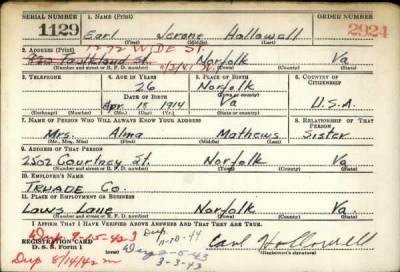 SERIAL NUMBER 1. NAME (Print) ORDER NUMBER
1129 Earl Jerome Hollowell 2924
(First) (Middle) (Last)
1272 WIDE St.
2. ADDRESS (Print)
Norfolk Va
(Number and street or R. F. D. number) (Town) (County) (State)
3. TELEPHONE 4. AGE IN YEARS 5. PLACE OF BIRTH 6. COUNTRY OF CITIZENSHIP
26 Norfolk
(Town or county)
DATE OF BIRTH
Apr. 15 1914 Va U.S.A.
(Exchange) (Number) (Mo.) (Day) (Yr.) (State or country)
7. NAME OF PERSON WHO WILL ALWAYS KNOW YOUR ADDRESS 8. RELATIONSHIP OF THAT PERSON
Mrs. Alma Mathews Sister
(Mr., Mrs., Miss) (First) (Middle) (Last)
9. ADDRESS OF THAT PERSON
2502 Courtney St. Norfolk Va
(Number and street or R. F. D. number) (Town) (County) (State)
10. EMPLOYER'S NAME
TRWADE Co.
11. PLACE OF EMPLOYMENT OR BUSINESS
Laws Lane Norfolk Va
(Number and street or R. F. D. number) (Town) (County) (State)
I AFFIRM THAT I HAVE VERIFIED ABOVE ANSWERS AND THAT THEY ARE TRUE.
Dup 9-25-42 Dup 11-10-44
REGISTRATION CARD
D. S. S. Form 1 3-3-43 Earl Hollowell
Dup 8/14/42 (Registrant's signature)